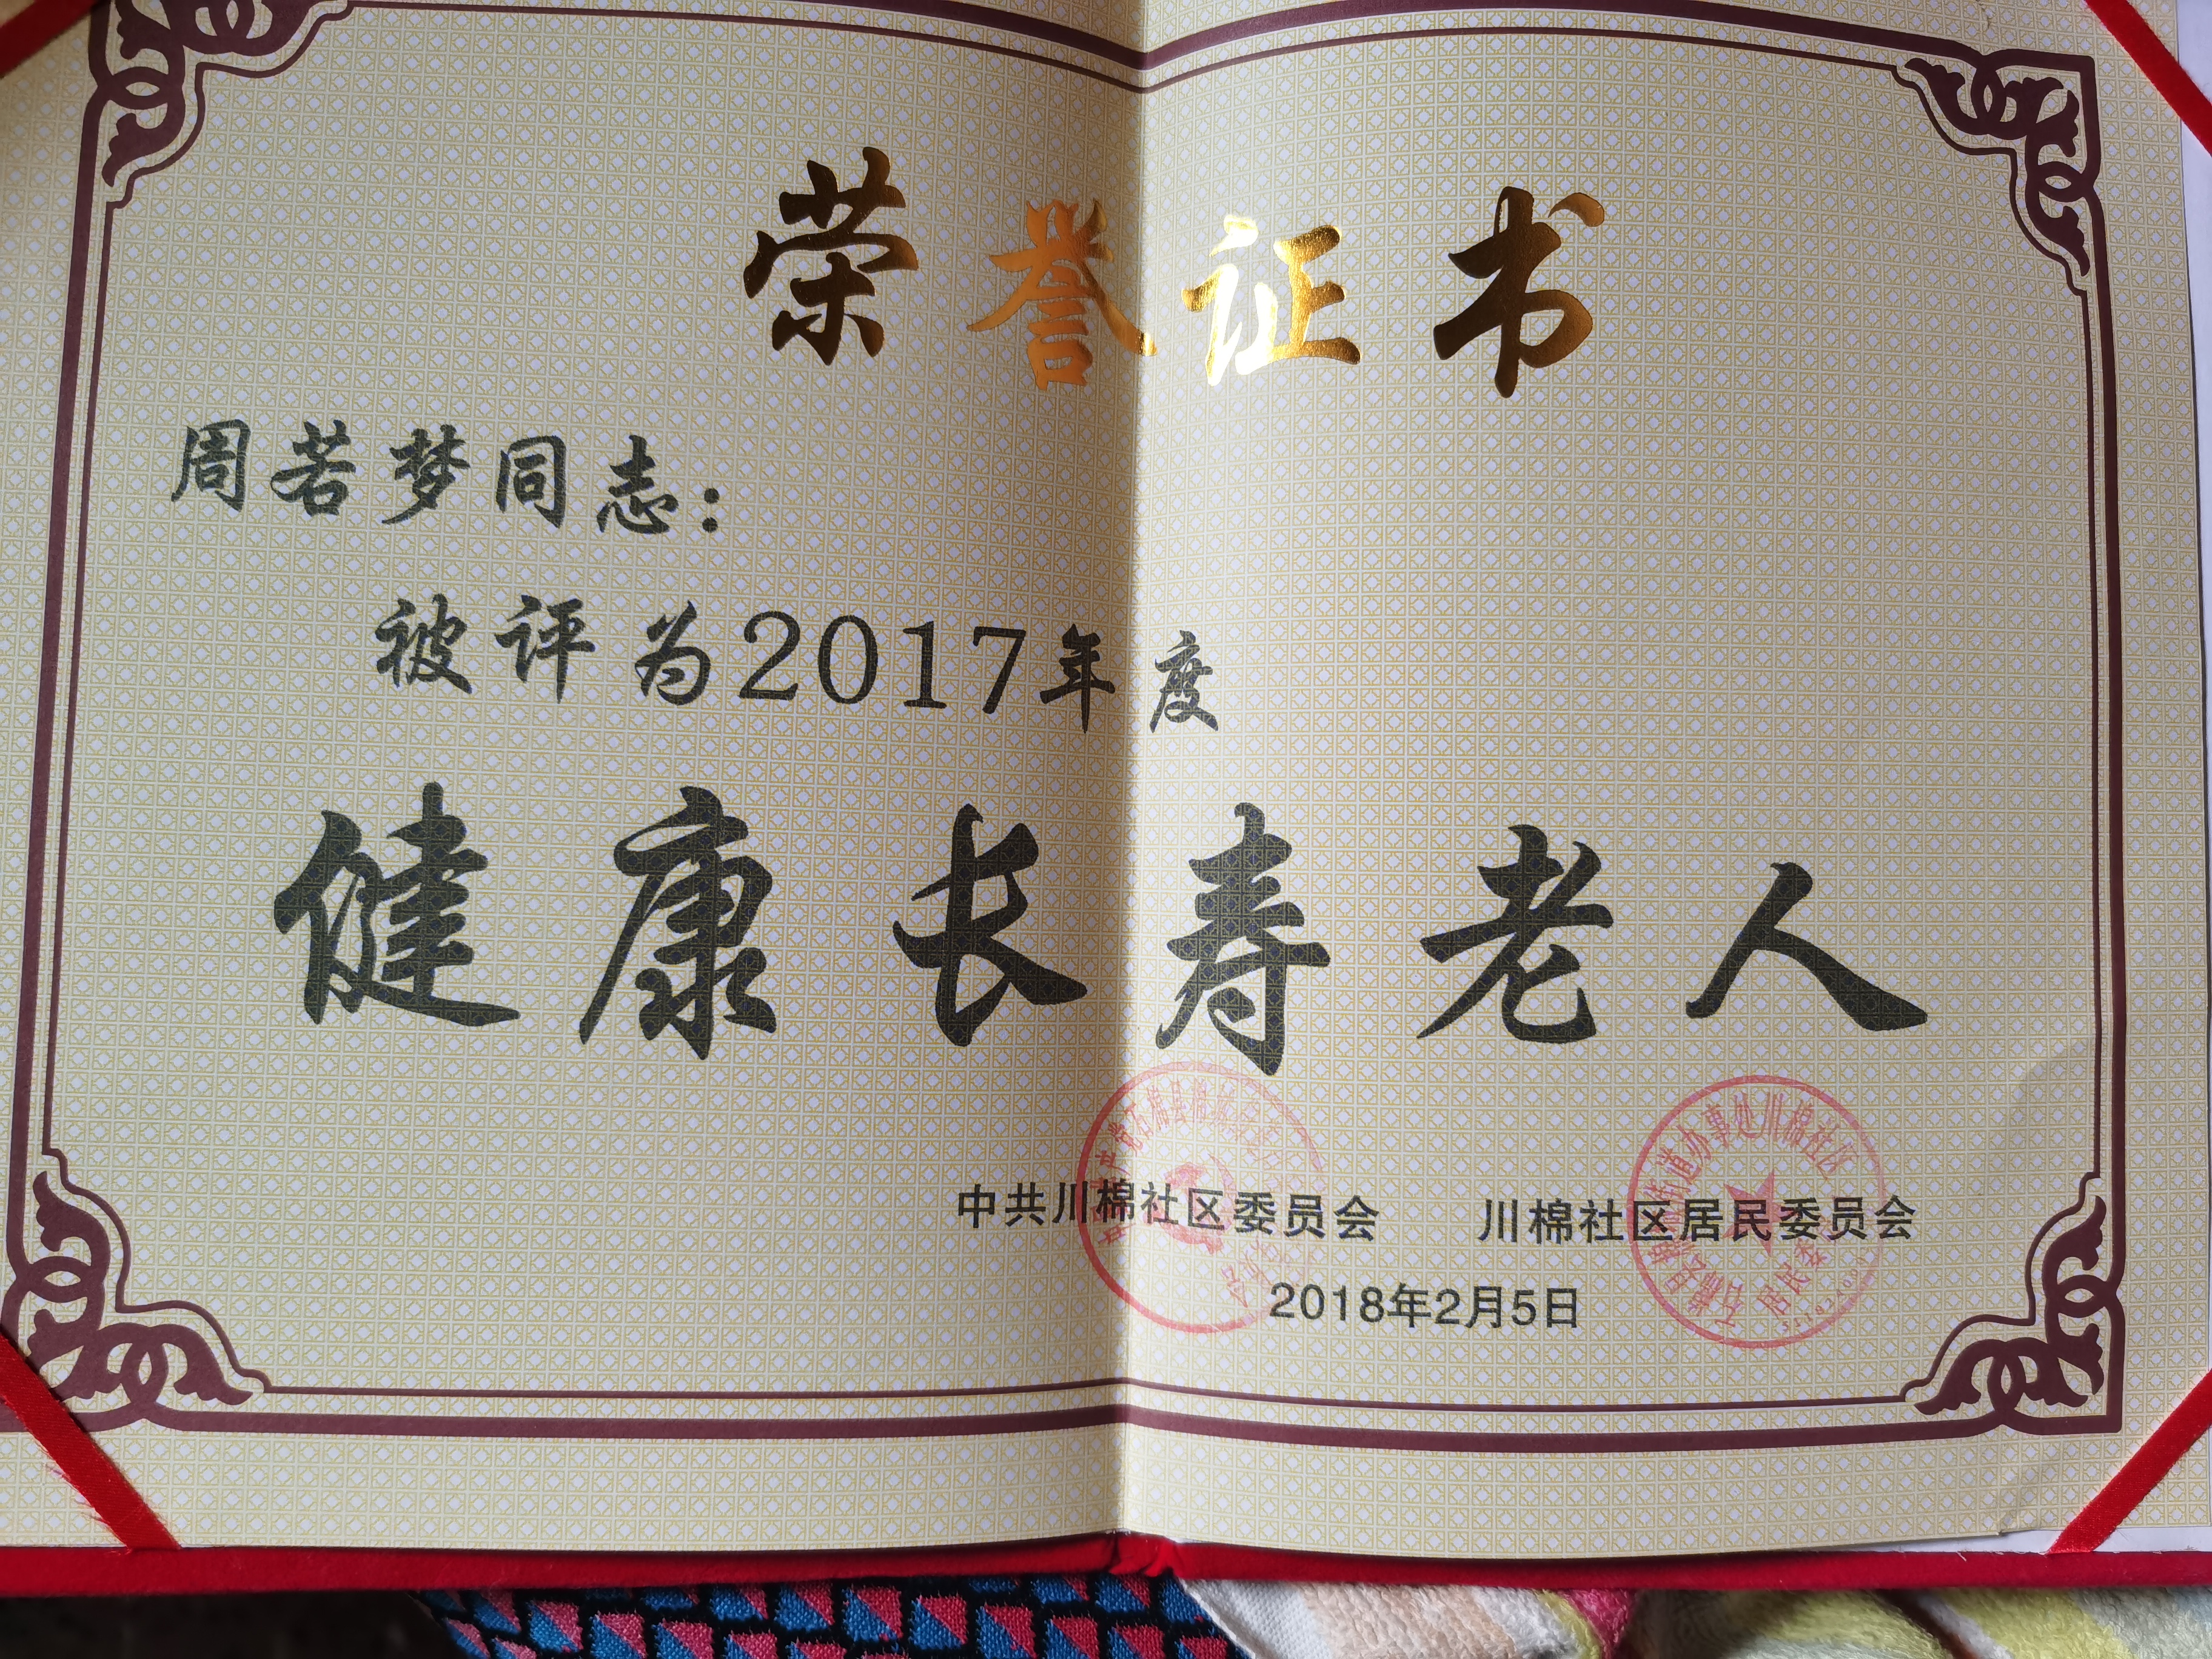 荣誉证书
周若梦同志：
被评为2017年度
健康长寿老人
中共川棉社区委员会 川棉社区居民委员会
2018年2月5日
道办事处川棉社区